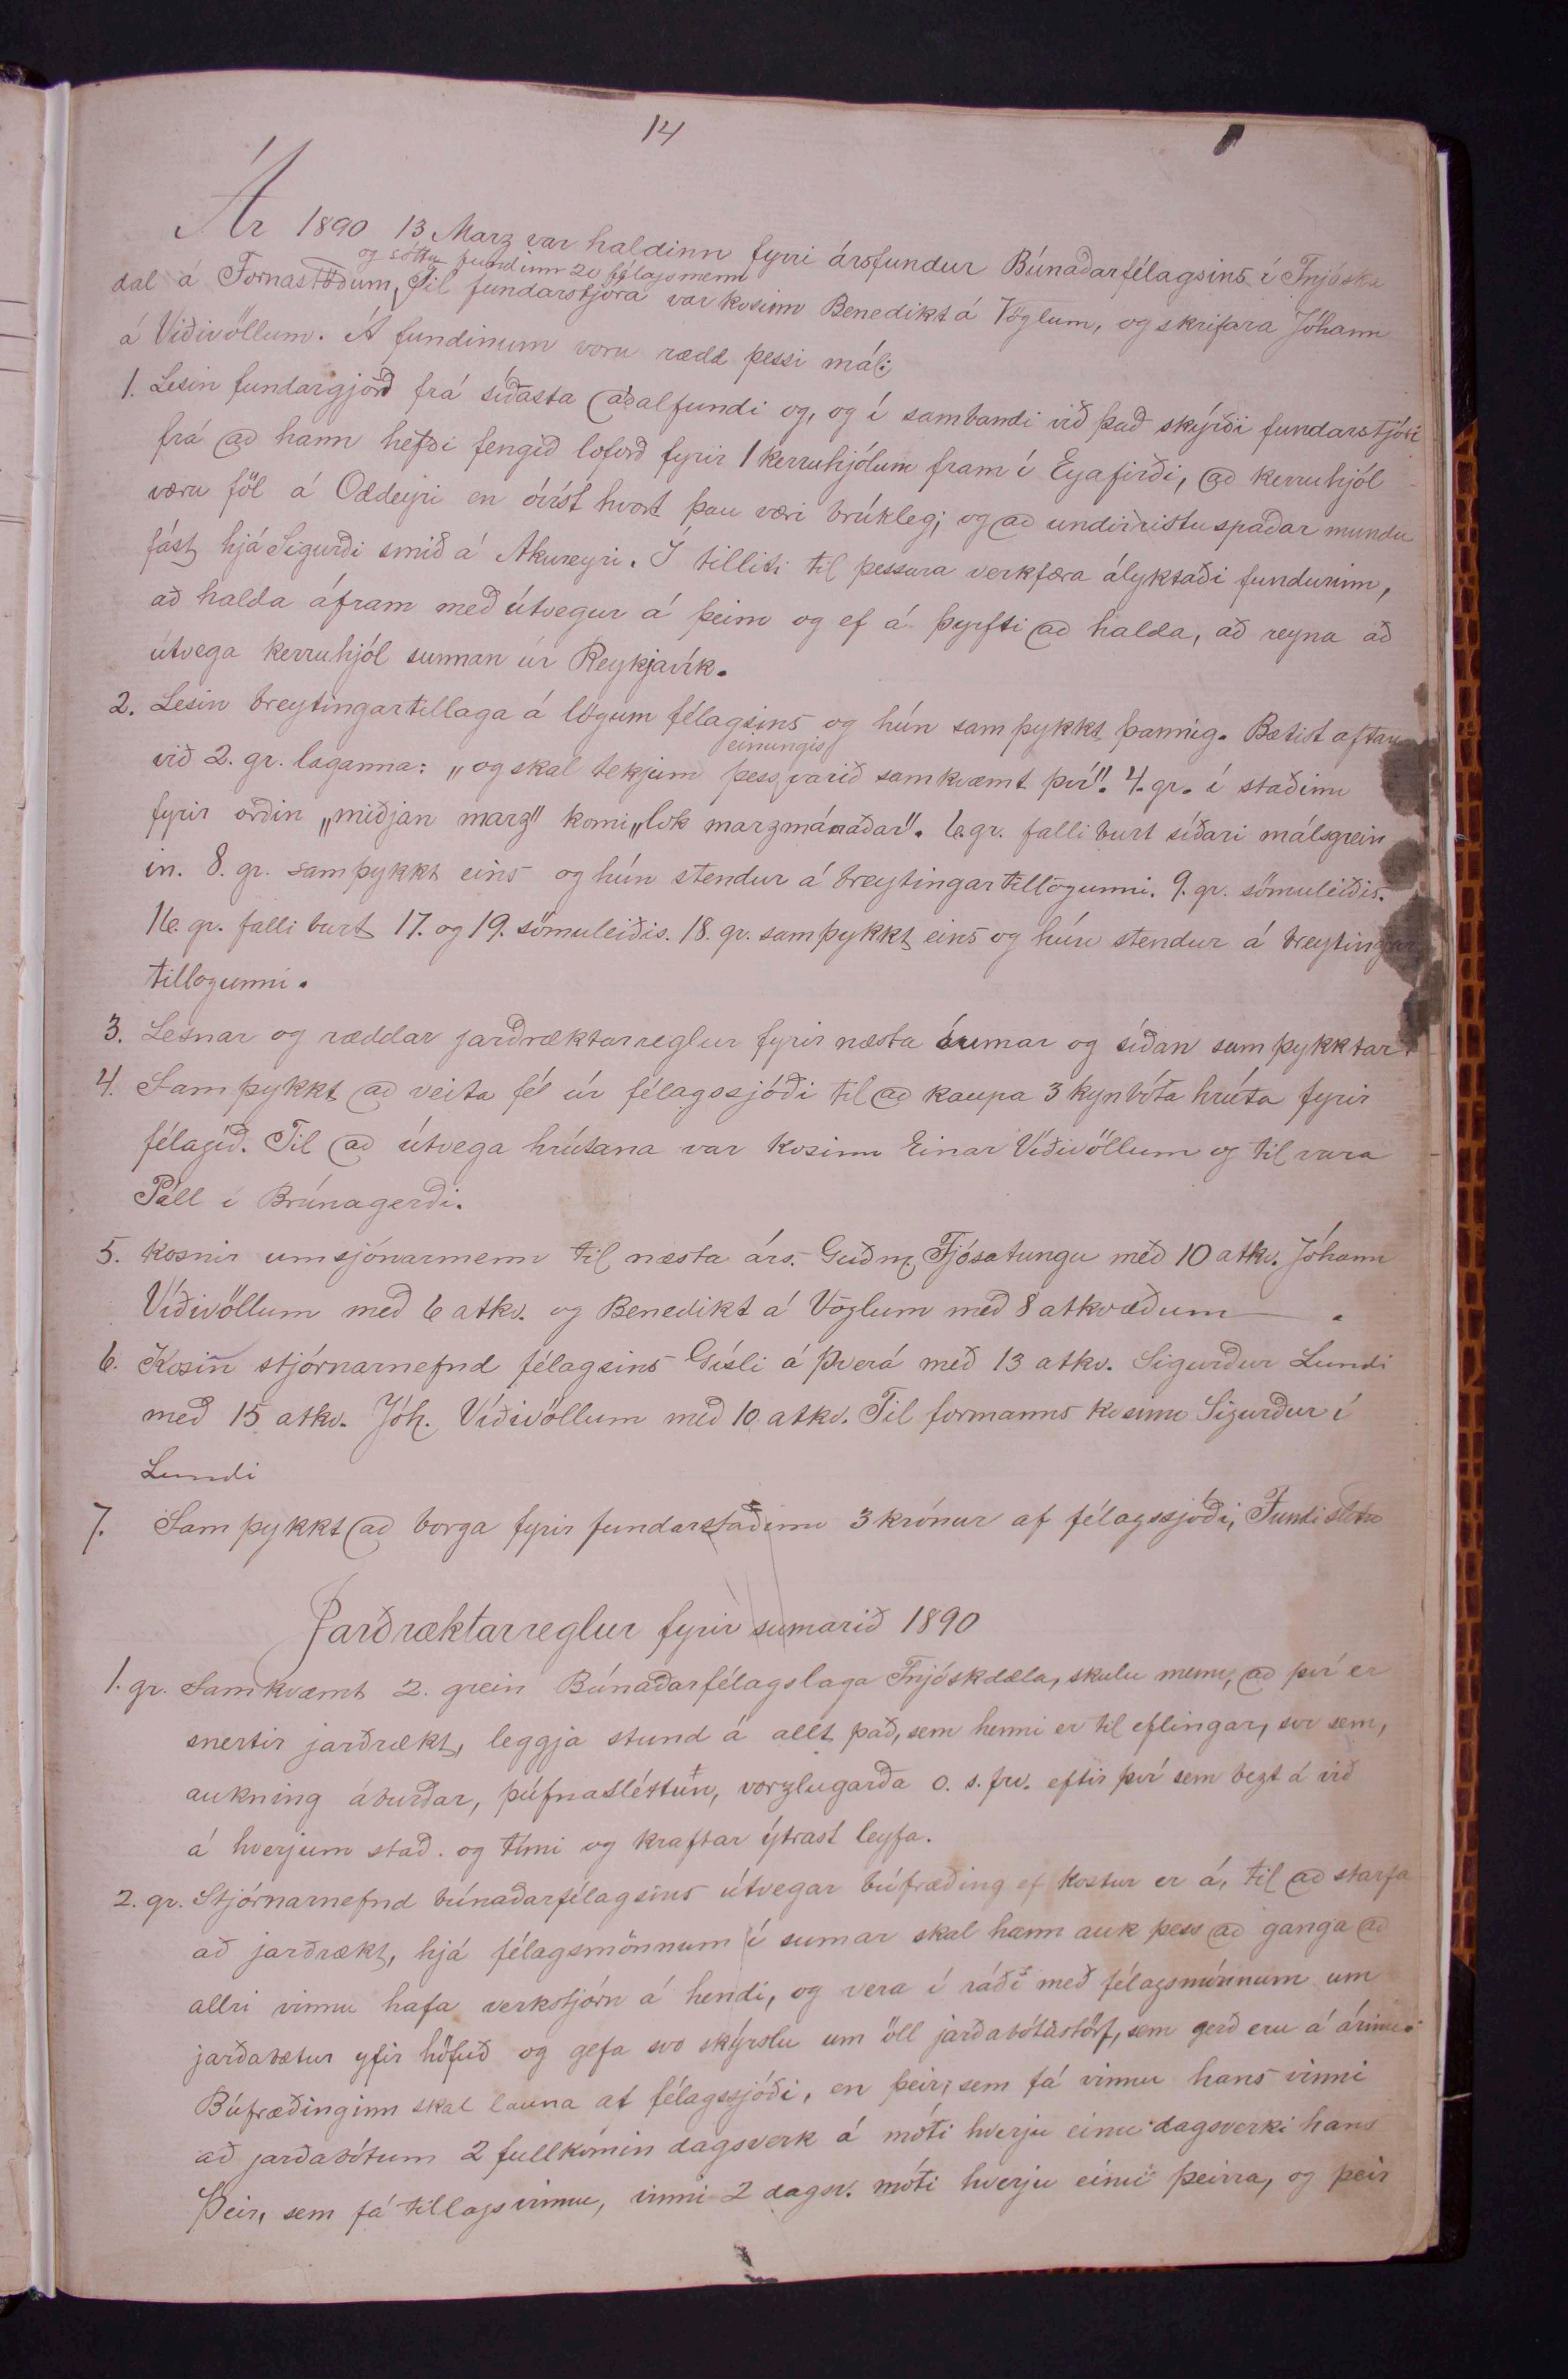 14
Ár 1890 13 Marz var haldinn fyrri ársfundur Búnaðarfélagsins í Fnjóska
og sóttu fundinn 20 félagsmenn
dal á Fornastöðum, Til fundarstjóra var kosinn Benedikt á Vöglum, og skrifara Jóhann
á Víðivöllum. Á fundinum voru rædd þessi mál:
1. Lesin fundargjörð frá síðasta aðalfundi og, og í sambandi við það skýrði fundarstjóri
frá að hann hefði fengið loforð fyrir 1 kerruhjólum fram í Eyafirði, að kerruhjól
væru föl á Oddeyri en óvíst hvort þau væri brúkleg; og að undirristuspaðar mundu
fást hjá Sigurði smið á Akureyri. Í tilliti til þessara verkfæra ályktaði fundurinn,
að halda áfram með útvegur á þeim og ef á þyrfti að halda, að reyna að
útvega kerruhjól sunnan úr Reykjavík.
2. Lesin breytingartillaga á lögum félagsins og hún samþykkt þannig. Bætist aftan
einungis
við 2. gr. laganna: „og skal tekjum þess varið samkvæmt því". 4. gr. í staðinn
fyrir orðin „miðjan marz" komi „lok marzmánaðar". 6. gr. falli burt síðari málsgrein
in. 8. gr. samþykkt eins og hún stendur á breytingartillögunni. 9. gr. sömuleiðis.
16. gr. falli burt 17. og 19. sömuleiðis. 18. gr. samþykkt eins og hún stendur á breytingar
tillogunni.
3. Lesnar og ræddar jarðræktarreglur fyrir næsta sumar og síðan samþykktar
4. Samþykkt að veita fé úr félagssjóði til að kaupa 3 kynbóta hrúta fyrir
félagið. Til að útvega hrútana var kosinn Einar Víðivöllum og til vara
Páll í Brúnagerði.
5. Kosnir umsjónarmenn til næsta árs. Guðm. Fjósatungu með 10 atkv. Jóhann
Víðivöllum með 6 atkv. og Benedikt á Vöglum með 8 atkvæðum.
6. Kosin stjórnarnefnd félagsins Gísli á Þverá með 13 atkv. Sigurður Lundi
með 15 atkv. Jóh. Víðivöllum með 10 atkv. Til formanns kosinn Sigurður í
Lundi
7. Samþykkt að borga fyrir fundarstaðinn 3 krónur af félagssjóði, Fundi slitið
Jarðræktarreglur fyrir sumarið 1890
1. gr. Samkvæmt 2. grein Búnaðarfélagslaga Fnjóskdæla, skulu menn, að því er
snertir jarðrækt, leggja stund á allt það, sem henni er til eflingar, svo sem,
aukning áburðar, þúfnasléttun, vorzlugarða o. s. frv. eftir því sem bezt á við
á hverjum stað. og tími og kraftar ýtrast leyfa.
2. gr. Stjórnarnefnd búnaðarfélagsins útvegar búfræðing ef kostur er á, til að starfa
að jarðrækt, hjá félagsmönnum í sumar skal hann auk þess að ganga að
allri vinnu hafa verkstjórn á hendi, og vera í ráði með félagsmönnum um
jarðabætur yfir höfuð og gefa svo skýrslu um öll jarðabótastörf, sem gerð eru á árinu.
Búfræðinginn skal launa af félagssjóði, en þeir, sem fá vinnu hans vinni
að jarðabótum 2 fullkomin dagsverk á móti hverju einu dagsverki hans
Þeir, sem fá tillagsvinnu, vinni 2 dagsv. móti hverju einu þeirra, og þeir